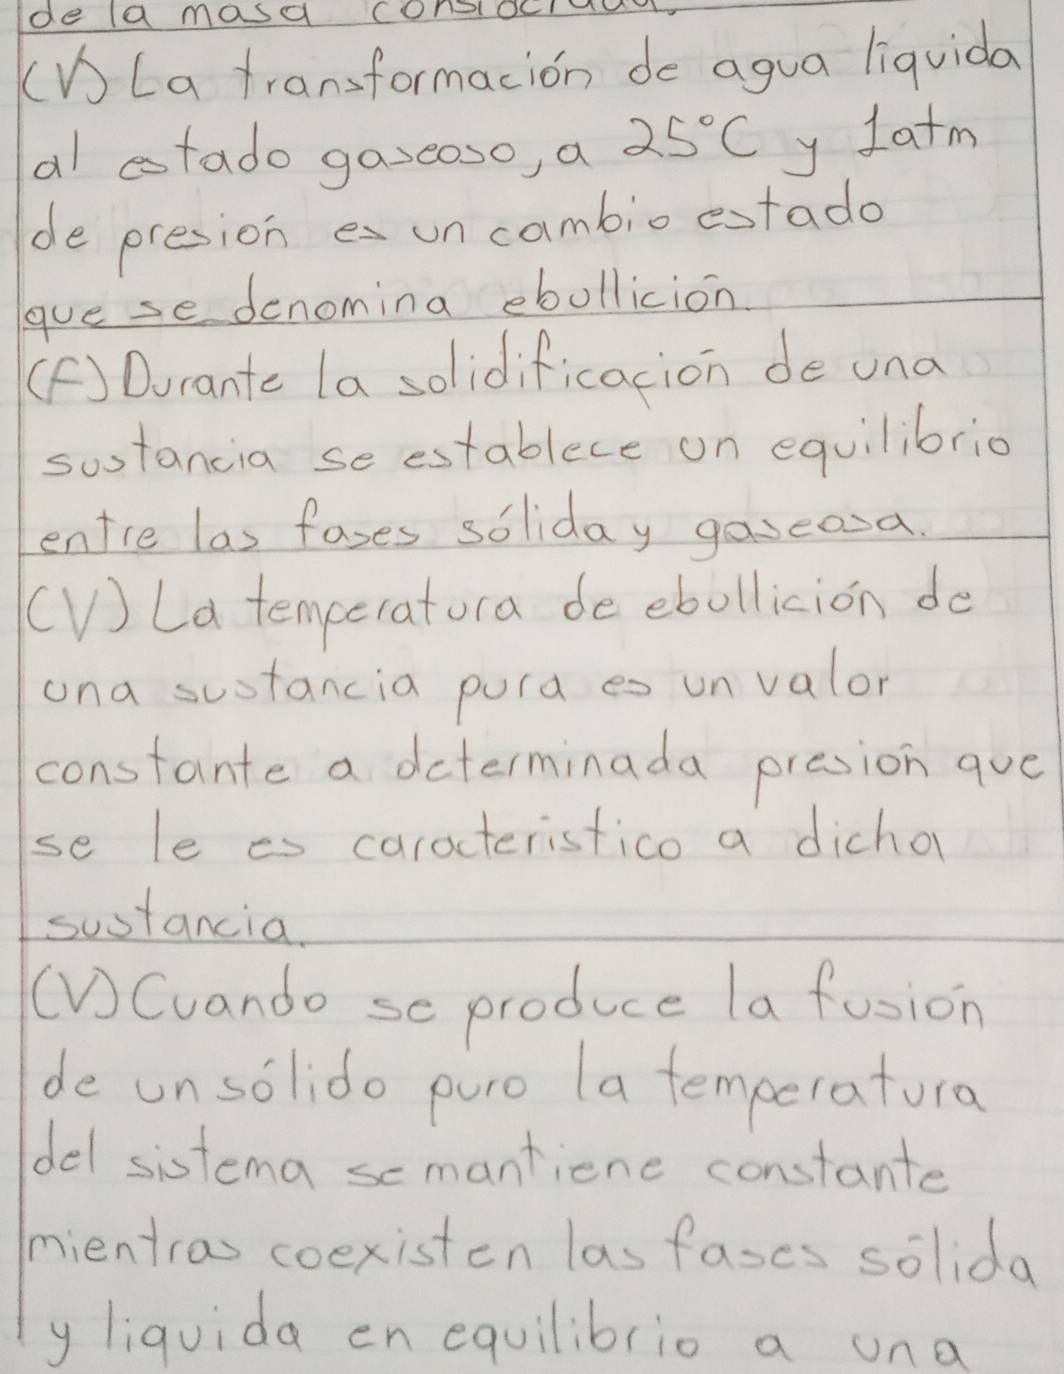 de la masa considerada.
(V) La transformación de agua liquida
al estado gaseoso, a 25°C y 1atm
de presión es un cambio estado
que se denomina ebullición.
(F) Durante la solidificación de una
sustancia se establece un equilibrio
entre las fases sólida y gaseosa.
(V) La temperatura de ebullición de
una sustancia pura es un valor
constante a determinada presión que
se le es caracteristico a dicha
sustancia.
(V) Cuando se produce la fusión
de un sólido puro la temperatura
del sistema se mantiene constante
mientras coexisten las fases sólida
y liquida en equilibrio a una